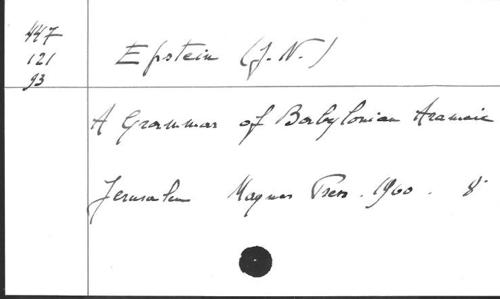 447
121
93
Epstein (J. N.)
A Grammar of Babylonian Aramaic
Jerusalem Magnes Press. 1960. 8°